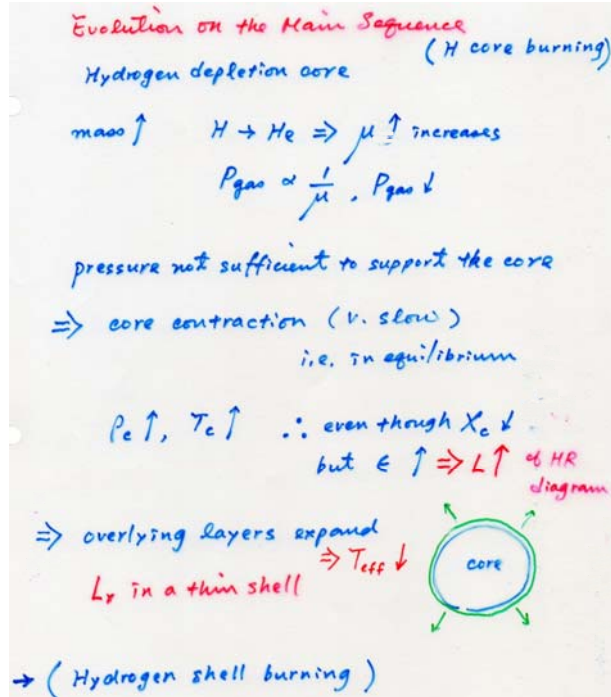 Evolution on the Main Sequence
(H core burning)
Hydrogen depletion core
mass ↑ H → He ⇒ μ ↑ increases
Pgas ∝ 1/μ , Pgas ↓
pressure not sufficient to support the core
⇒ core contraction (v. slow)
i.e. in equilibrium
ρc ↑, Tc ↑ ∴ even though Xc ↓
but ϵ ↑ ⇒ L ↑ of HR
diagram
⇒ overlying layers expand
⇒ Teff ↓
core
Lr in a thin shell
→ (Hydrogen shell burning)